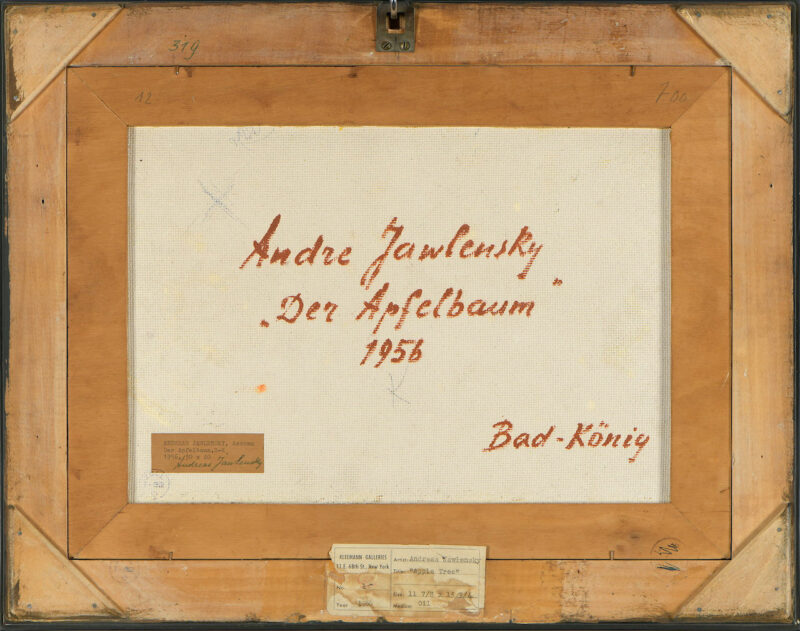 319
12
700
Andre Jawlensky
„Der Apfelbaum"
1956
Bad-König
ANDREAS JAWLENSKY, Ascona
Der Apfelbaum,
1956, 30 x 40
Andreas Jawlensky
32
KLEEMANN GALLERIES
11 E. 68th St., New York
Artist Andreas Jawlensky
Title "Apple Tree"
No.
Size 11 7/8 x 15 3/4
Year
Medium Oil